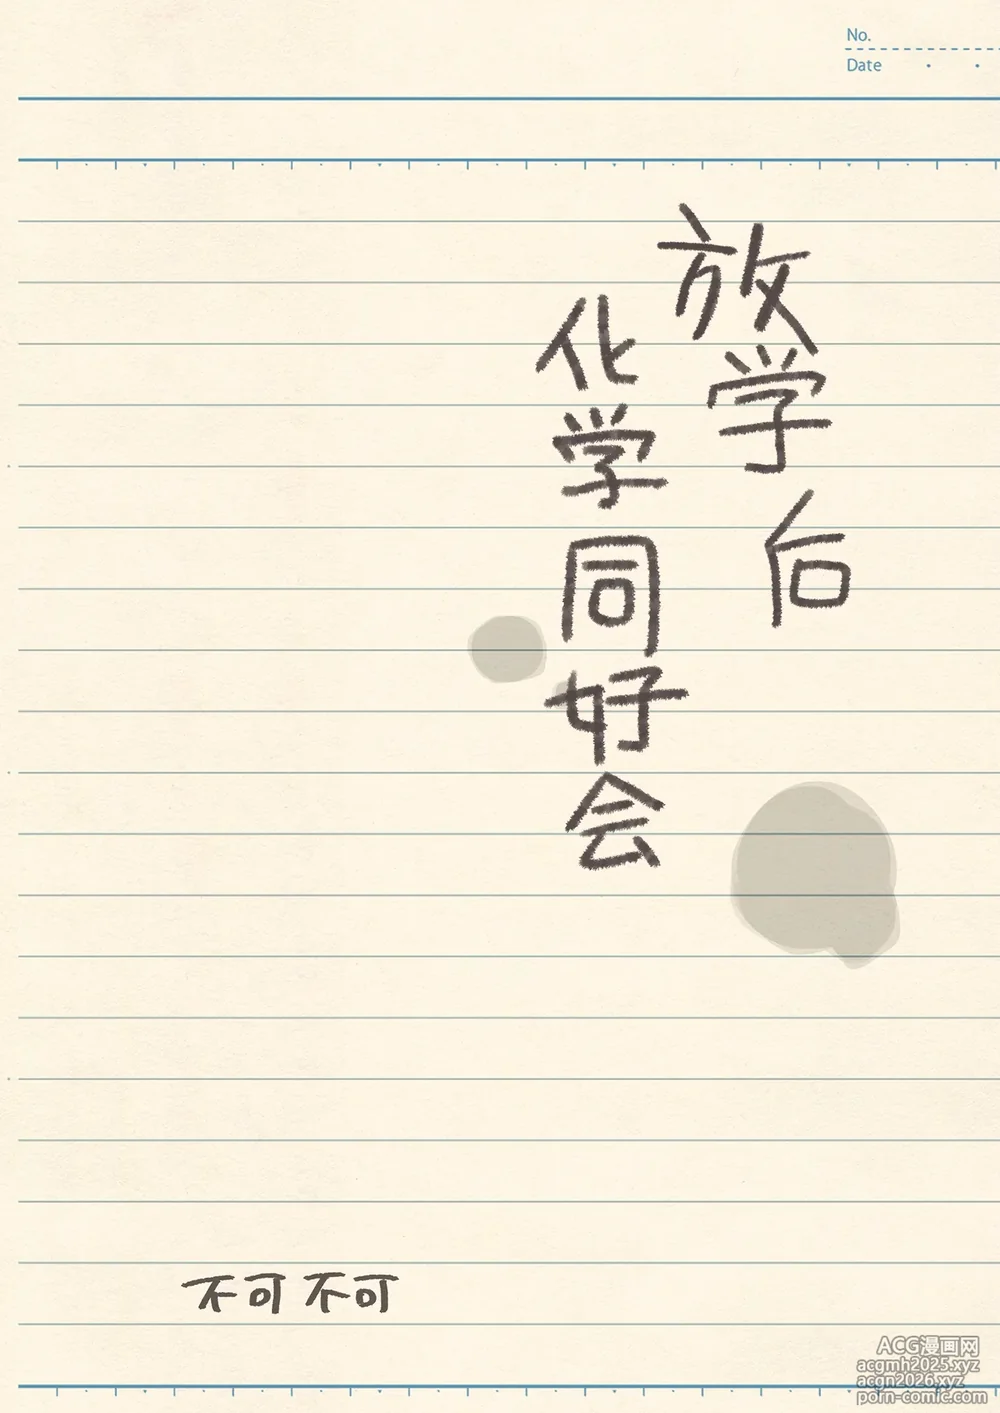 No.
Date
放学后
化学同好会
不可不可
ACG漫画网
acgmh2025.xyz
acgn2026.xyz
porn-comic.com